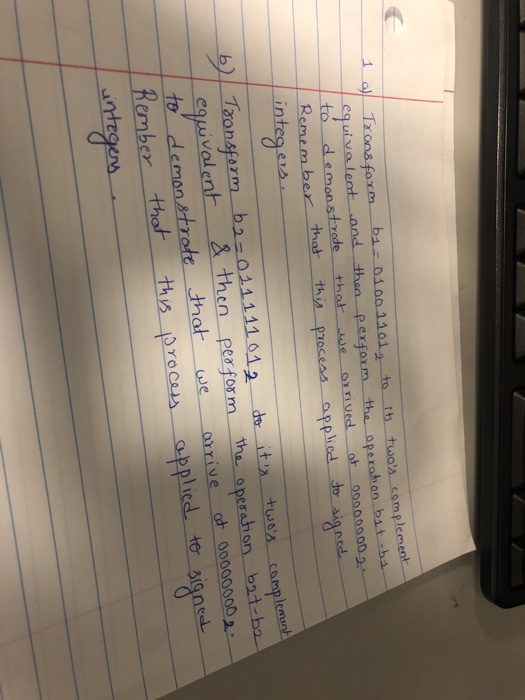 1 a) Transform b1 = 010011012 to its two's complement
equivalent and then perform the operation b1+-b1
to demonstrate that we arrived at 000000002.
Remember that this process applied to signed
integers.
b) Transform b2 = 011111012 to it's two's complement
equivalent & then perform the operation b2+-b2
to demonstrate that we arrive at 000000002.
Rember that this process applied to signed
integers.